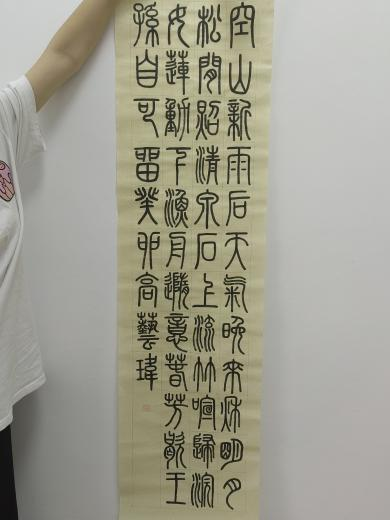 空山新雨后天氣晚來秋明月
松間照清泉石上流竹喧歸浣
女蓮動下漁舟隨意春芳歇王
孫自可留癸卯高藝瑋